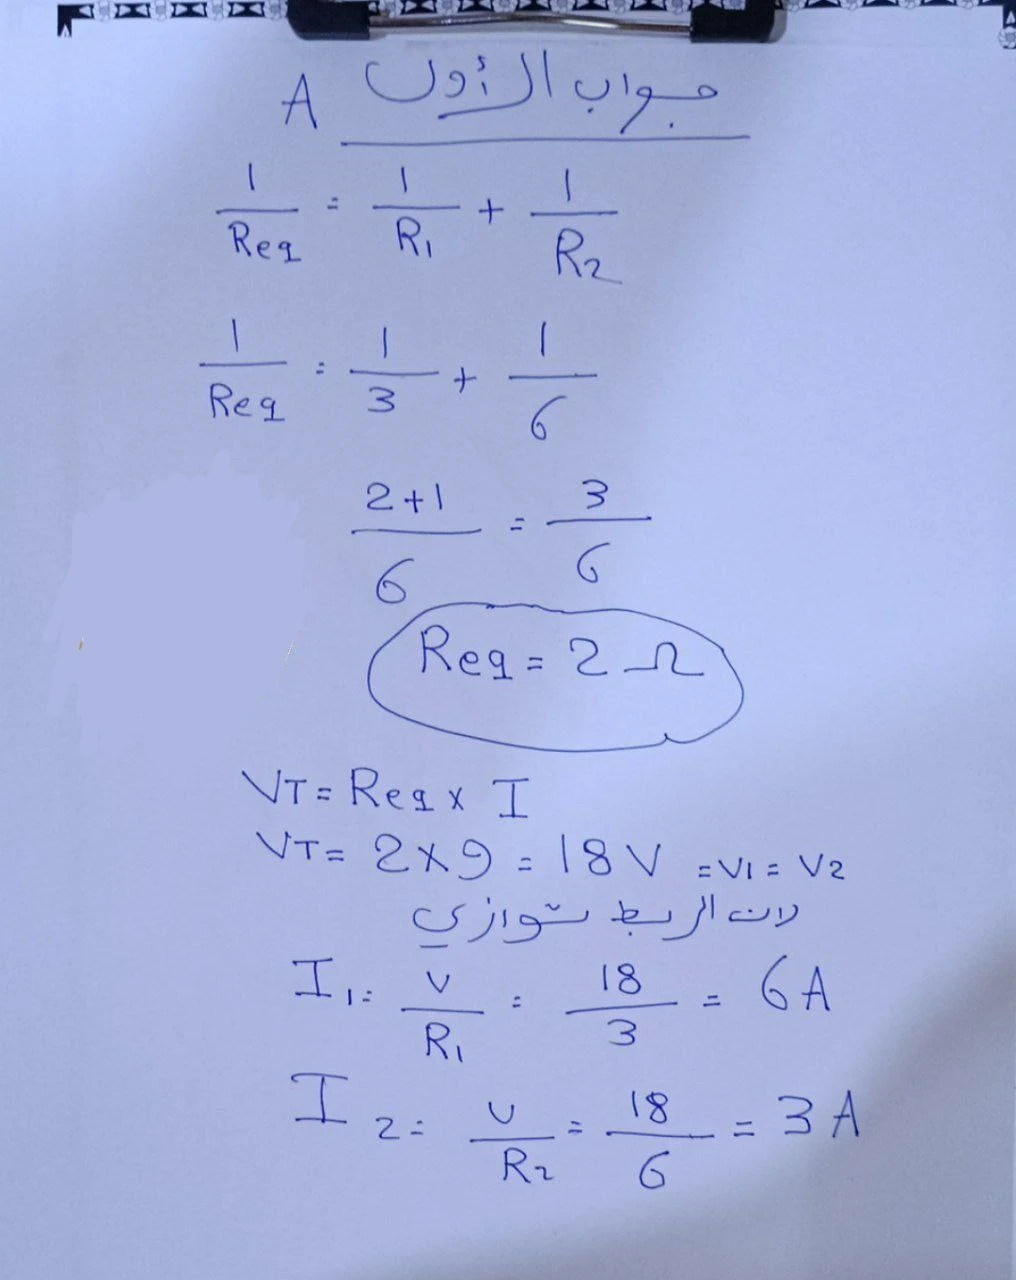 جواب الأول A
1/Req = 1/R1 + 1/R2
1/Req = 1/3 + 1/6
2+1/6 = 3/6
Req = 2 Ω
VT = Req x I
VT = 2 x 9 = 18 V = V1 = V2
لان الربط توازي
I1 = V/R1 = 18/3 = 6 A
I2 = V/R2 = 18/6 = 3 A